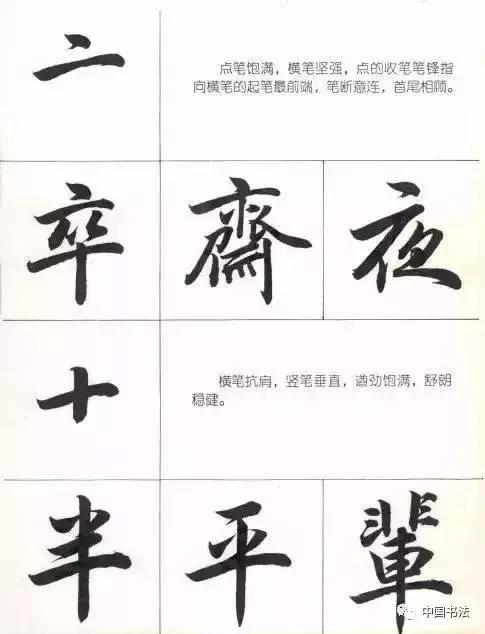 亠
点笔饱满，横笔坚强，点的收笔笔锋指
向横笔的起笔最前端，笔断意连，首尾相顾。
卒 齋 夜
十
横笔抗肩，竖笔垂直，遒劲饱满，舒朗
稳健。
半 平 輩
中国书法